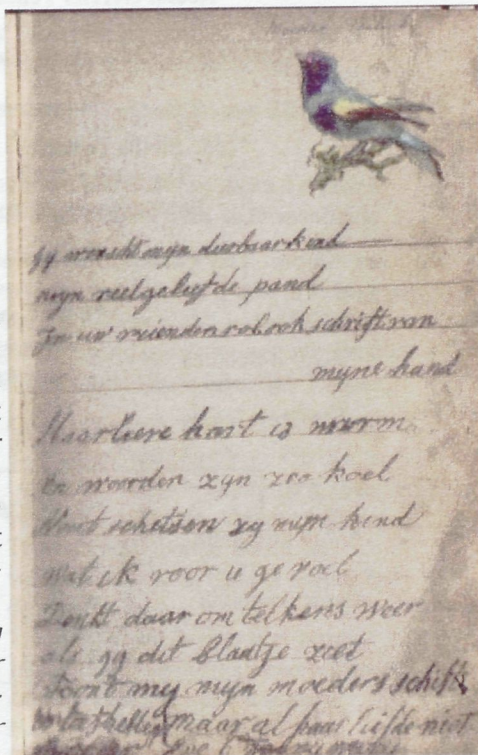 gy wenscht myn dierbaar kind
myn veelgeliefde pand
In uw vrienden rol ook schrift van
myne hand
Maar lieve hart is warm
en woorden zyn zoo koel
Nooit schetsen zy myn kind
wat ik voor u gevoel
Denkt daarom telkens weer
als gy dit blaadje ziet
Toont my myn moeders schift
maar al haar liefde niet